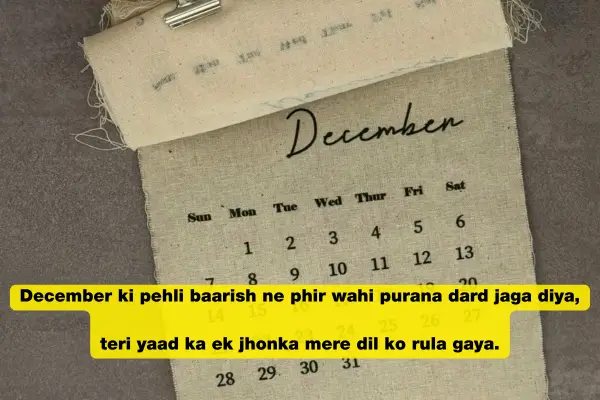 December
Sun Mon Tue Wed Thur Fri Sat
1 2 3 4 5 6
7 8 9 10 11 12 13
14 15 20
27
28 29 30 31
December ki pehli baarish ne phir wahi purana dard jaga diya,
teri yaad ka ek jhonka mere dil ko rula gaya.